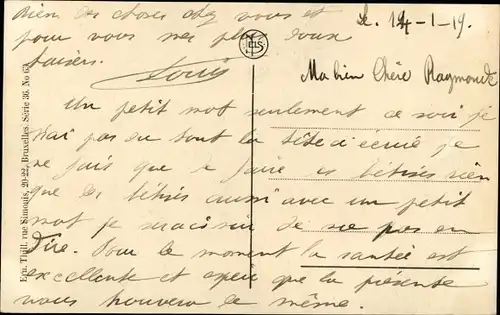 Le. 14-1-19.
Ma bien Chère Raymonde
Un petit mot seulement ce soir je
n'ai pas eu tout la tête à écrire je
ne fais que de faire des bêtises rien
que des bêtises aussi avec un petit
mot je de ne pas en
dire. Pour le moment la santée est
excellente et espère que la présente
vous trouvera de même.
Bien des choses chez vous et
pour vous mes plus doux
baisers.
Louis
Ern. Thill, rue Simonis, 20-22, Bruxelles. Série 36, No 63